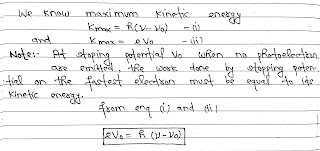 We know maximum kinetic energy
Kmax = h(ν - ν₀) - (i)
and Kmax = eV₀ - (ii)
Note:- At stoping potential V₀ when no photoelectron
are emitted, the work done by stopping poten-
tial on the fastest electron must be equal to its
kinetic energy.
from enq (i) and (ii)
eV₀ = h (ν - ν₀)